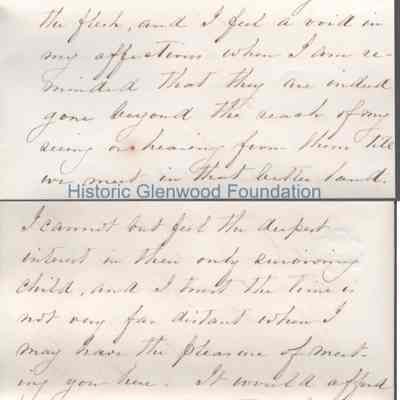 the flesh, and I feel a void in
my affections when I am re-
minded that they are indeed
gone beyond the reach of my
seeing or hearing from them till
we meet in that better land.
Historic Glenwood Foundation
I cannot but feel the deepest
interest in their only surviving
child, and I trust the time is
not very far distant when I
may have the pleasure of meet-
ing you here. It would afford